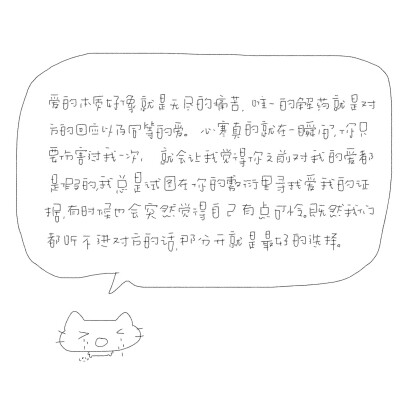 爱的本质好像就是无尽的痛苦,唯一的解药就是对
方的回应以及同等的爱。心寒真的就在一瞬间,你只
要伤害过我一次,就会让我觉得你之前对我的爱都
是假的,我总是试图在你的敷衍里寻找爱我的证
据,有时候也会突然觉得自己有点可怜。既然我们
都听不进对方的话,那分开就是最好的选择。